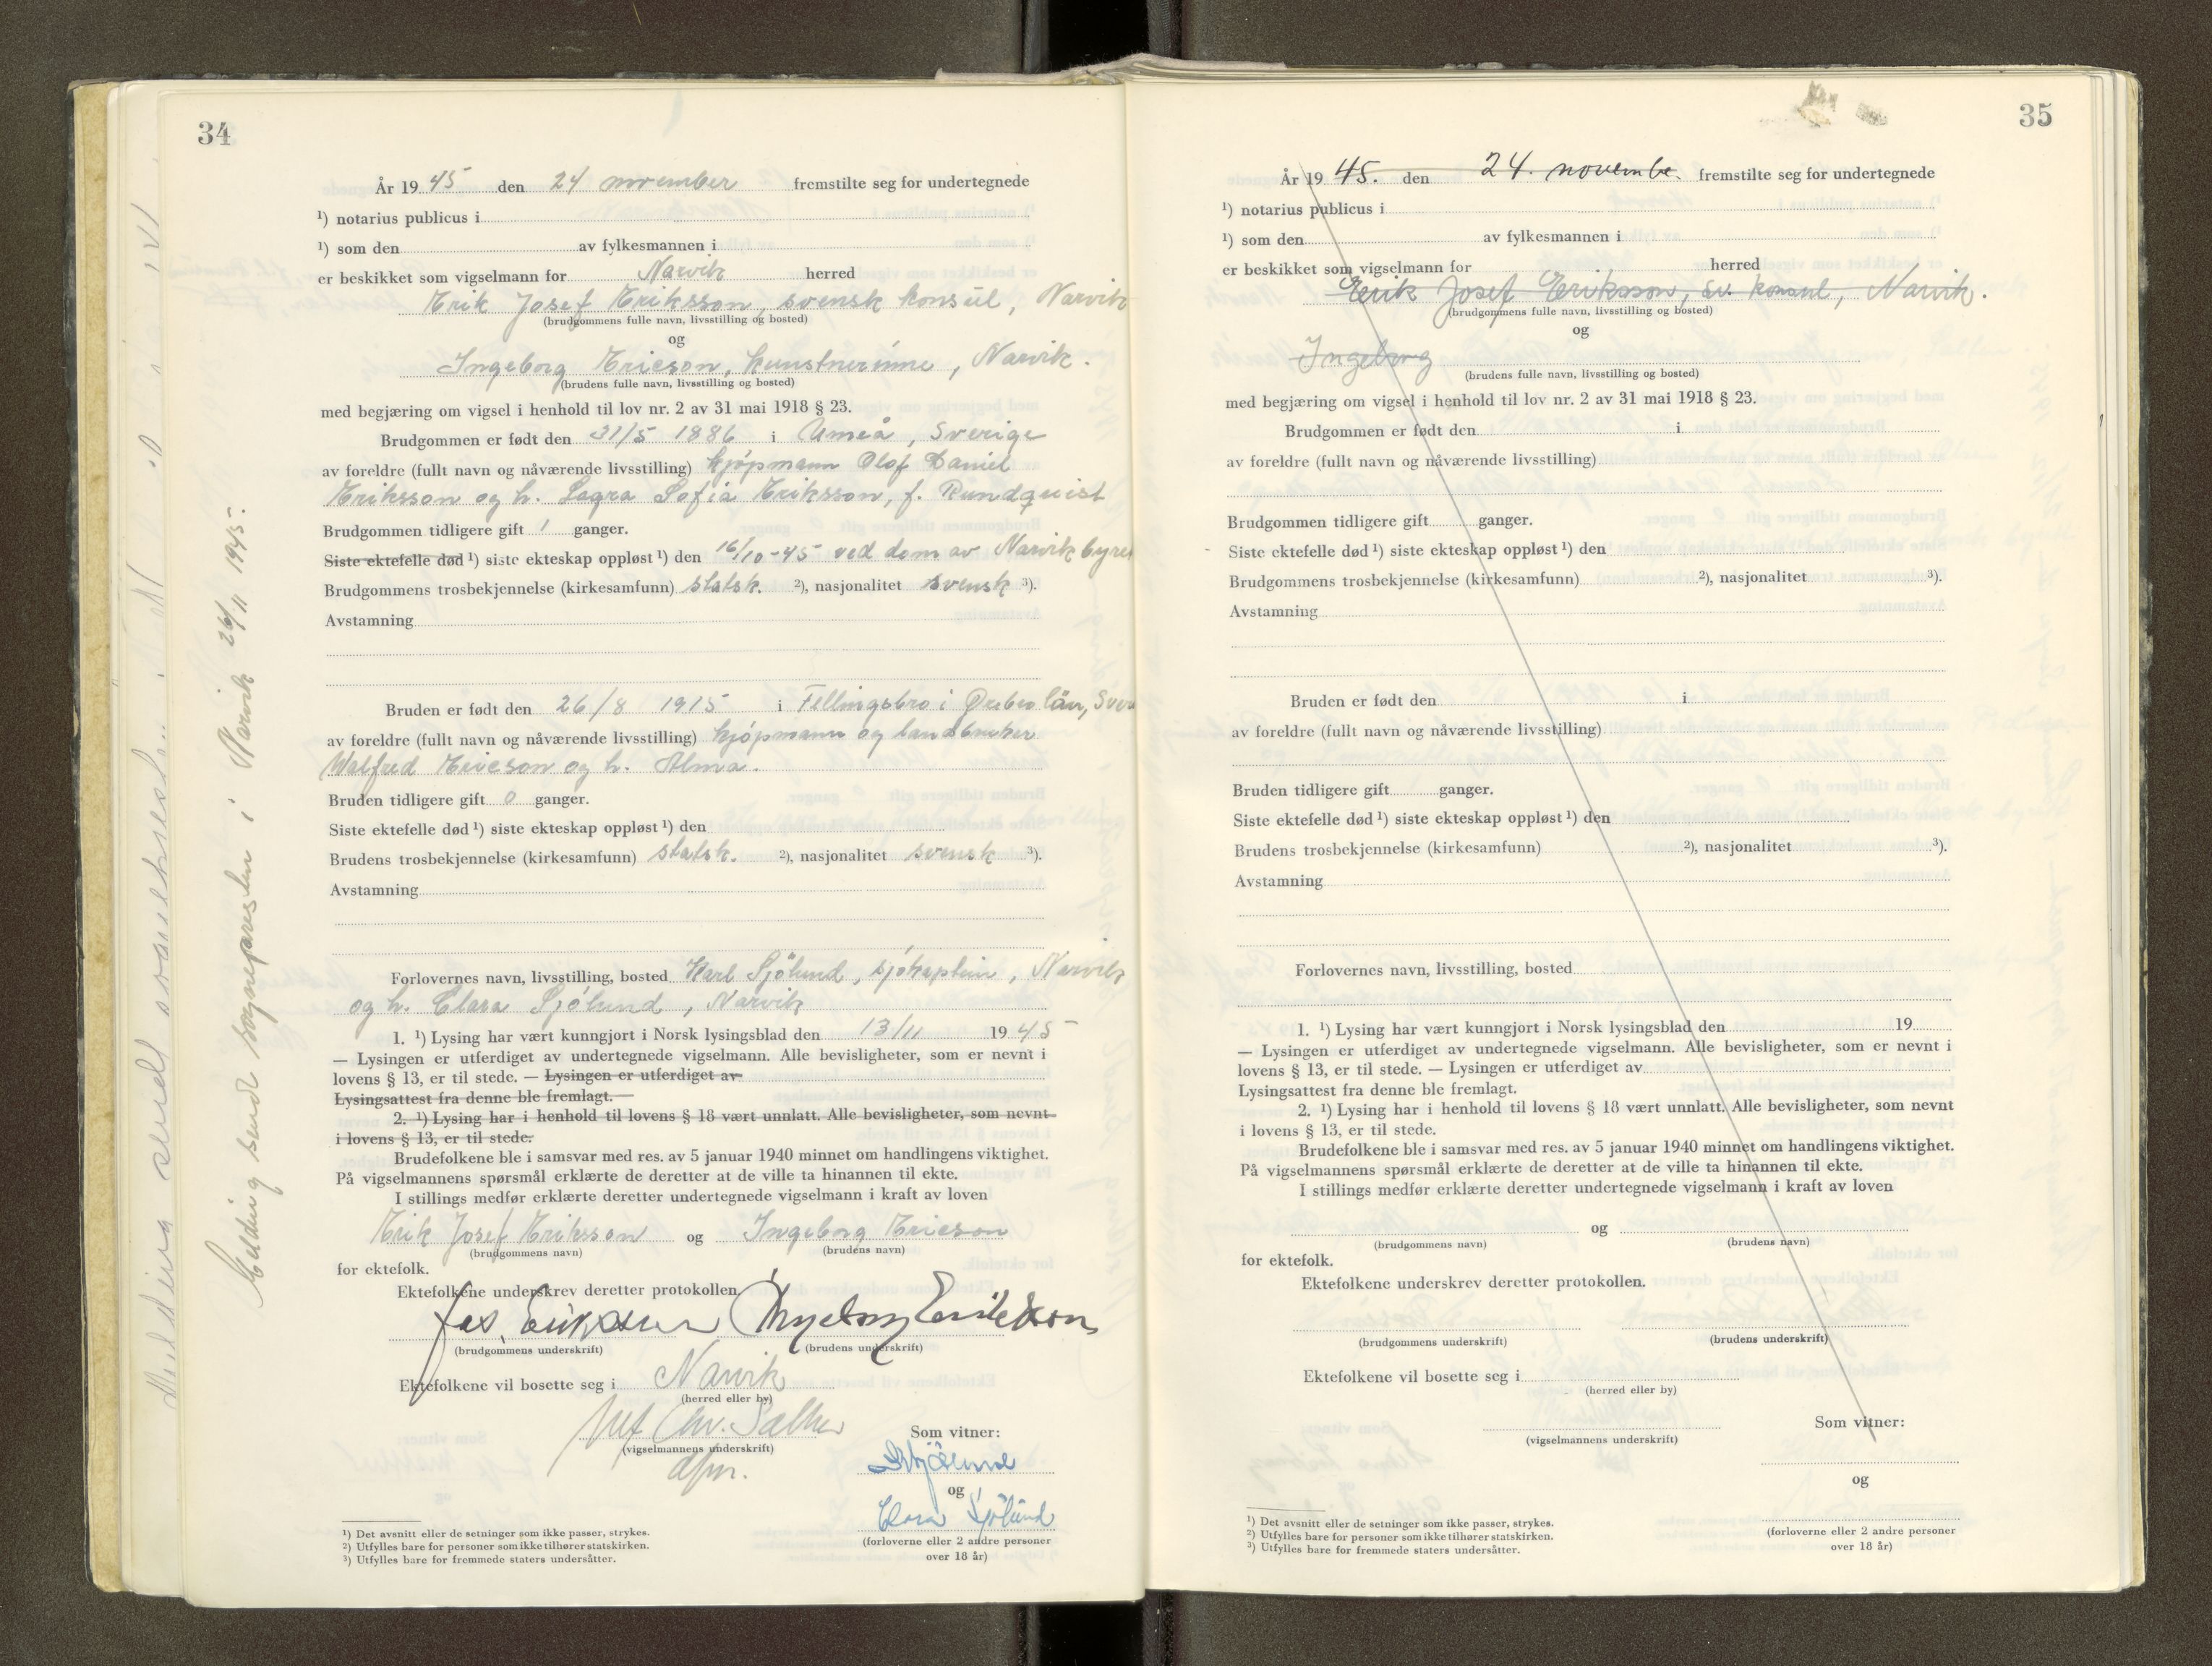 34
År 19 45 den 24 november fremstilte seg for undertegnede
¹) notarius publicus i
¹) som den av fylkesmannen i
er beskikket som vigselmann for Narvik herred
Erik Josef Eriksson, svensk konsul, Narvik
(brudgommens fulle navn, livsstilling og bosted)
og
Ingeborg Ericson, kunstnerinne, Narvik.
(brudens fulle navn, livsstilling og bosted)
med begjæring om vigsel i henhold til lov nr. 2 av 31 mai 1918 § 23.
Brudgommen er født den 31/5 1886 i Umeå, Sverige
av foreldre (fullt navn og nåværende livsstilling) kjøpmann Olof Daniel
Eriksson og h. Sofia Eriksson, f. Rundquist
Brudgommen tidligere gift 1 ganger.
Siste ektefelle død ¹) siste ekteskap oppløst ¹) den 16/10-45 ved dom av Narvik byrett
Brudgommens trosbekjennelse (kirkesamfunn) statsk. ²), nasjonalitet svensk ³).
Avstamning
Bruden er født den 26/8 1915 i Fellingsbro i Ørebro län, Sver
av foreldre (fullt navn og nåværende livsstilling) kjøpmann og landbruker
Walfred Ericson og h. Alma.
Bruden tidligere gift 0 ganger.
Siste ektefelle død ¹) siste ekteskap oppløst ¹) den
Brudens trosbekjennelse (kirkesamfunn) statsk. ²), nasjonalitet svensk ³).
Avstamning
Forlovernes navn, livsstilling, bosted Karl Sjölund, sjökaptein, Narvik
og h. Clara Sjölund, Narvik
1. ¹) Lysing har vært kunngjort i Norsk lysingsblad den 13/11 19 45
— Lysingen er utferdiget av undertegnede vigselmann. Alle bevisligheter, som er nevnt i
lovens § 13, er til stede. — Lysingen er utferdiget av
Lysingsattest fra denne ble fremlagt. —
2. ¹) Lysing har i henhold til lovens § 18 vært unnlatt. Alle bevisligheter, som nevnt
i lovens § 13, er til stede.
Brudefolkene ble i samsvar med res. av 5 januar 1940 minnet om handlingens viktighet.
På vigselmannens spørsmål erklærte de deretter at de ville ta hinannen til ekte.
I stillings medfør erklærte deretter undertegnede vigselmann i kraft av loven
Erik Josef Eriksson og Ingeborg Ericson
(brudgommens navn) (brudens navn)
for ektefolk.
Ektefolkene underskrev deretter protokollen.
Jos. Eriksson Ingeborg Eriksson
(brudgommens underskrift) (brudens underskrift)
Ektefolkene vil bosette seg i Narvik
(herred eller by)
Chr. Sæther
(vigselmannens underskrift)
dfm.
Som vitner:
Sjölund
og
Clara Sjölund
(forloverne eller 2 andre personer
over 18 år)
¹) Det avsnitt eller de setninger som ikke passer, strykes.
²) Utfylles bare for personer som ikke tilhører statskirken.
³) Utfylles bare for fremmede staters undersåtter.
Melding sendt sognepresten i Narvik 26/11 1945.
35
År 19 45. den 24. novembe. fremstilte seg for undertegnede
¹) notarius publicus i
¹) som den av fylkesmannen i
er beskikket som vigselmann for herred
Erik Josef Eriksson, sv. konsul, Narvik.
(brudgommens fulle navn, livsstilling og bosted)
og
Ingeborg
(brudens fulle navn, livsstilling og bosted)
med begjæring om vigsel i henhold til lov nr. 2 av 31 mai 1918 § 23.
Brudgommen er født den i
av foreldre (fullt navn og nåværende livsstilling)
Brudgommen tidligere gift ganger.
Siste ektefelle død ¹) siste ekteskap oppløst ¹) den
Brudgommens trosbekjennelse (kirkesamfunn) ²), nasjonalitet ³).
Avstamning
Bruden er født den i
av foreldre (fullt navn og nåværende livsstilling)
Bruden tidligere gift ganger.
Siste ektefelle død ¹) siste ekteskap oppløst ¹) den
Brudens trosbekjennelse (kirkesamfunn) ²), nasjonalitet ³).
Avstamning
Forlovernes navn, livsstilling, bosted
1. ¹) Lysing har vært kunngjort i Norsk lysingsblad den 19
— Lysingen er utferdiget av undertegnede vigselmann. Alle bevisligheter, som er nevnt i
lovens § 13, er til stede. — Lysingen er utferdiget av
Lysingsattest fra denne ble fremlagt.
2. ¹) Lysing har i henhold til lovens § 18 vært unnlatt. Alle bevisligheter, som nevnt
i lovens § 13, er til stede.
Brudefolkene ble i samsvar med res. av 5 januar 1940 minnet om handlingens viktighet.
På vigselmannens spørsmål erklærte de deretter at de ville ta hinannen til ekte.
I stillings medfør erklærte deretter undertegnede vigselmann i kraft av loven
og
(brudgommens navn) (brudens navn)
for ektefolk.
Ektefolkene underskrev deretter protokollen.
(brudgommens underskrift) (brudens underskrift)
Ektefolkene vil bosette seg i
(herred eller by)
(vigselmannens underskrift)
Som vitner:
og
(forloverne eller 2 andre personer
over 18 år)
¹) Det avsnitt eller de setninger som ikke passer, strykes.
²) Utfylles bare for personer som ikke tilhører statskirken.
³) Utfylles bare for fremmede staters undersåtter.